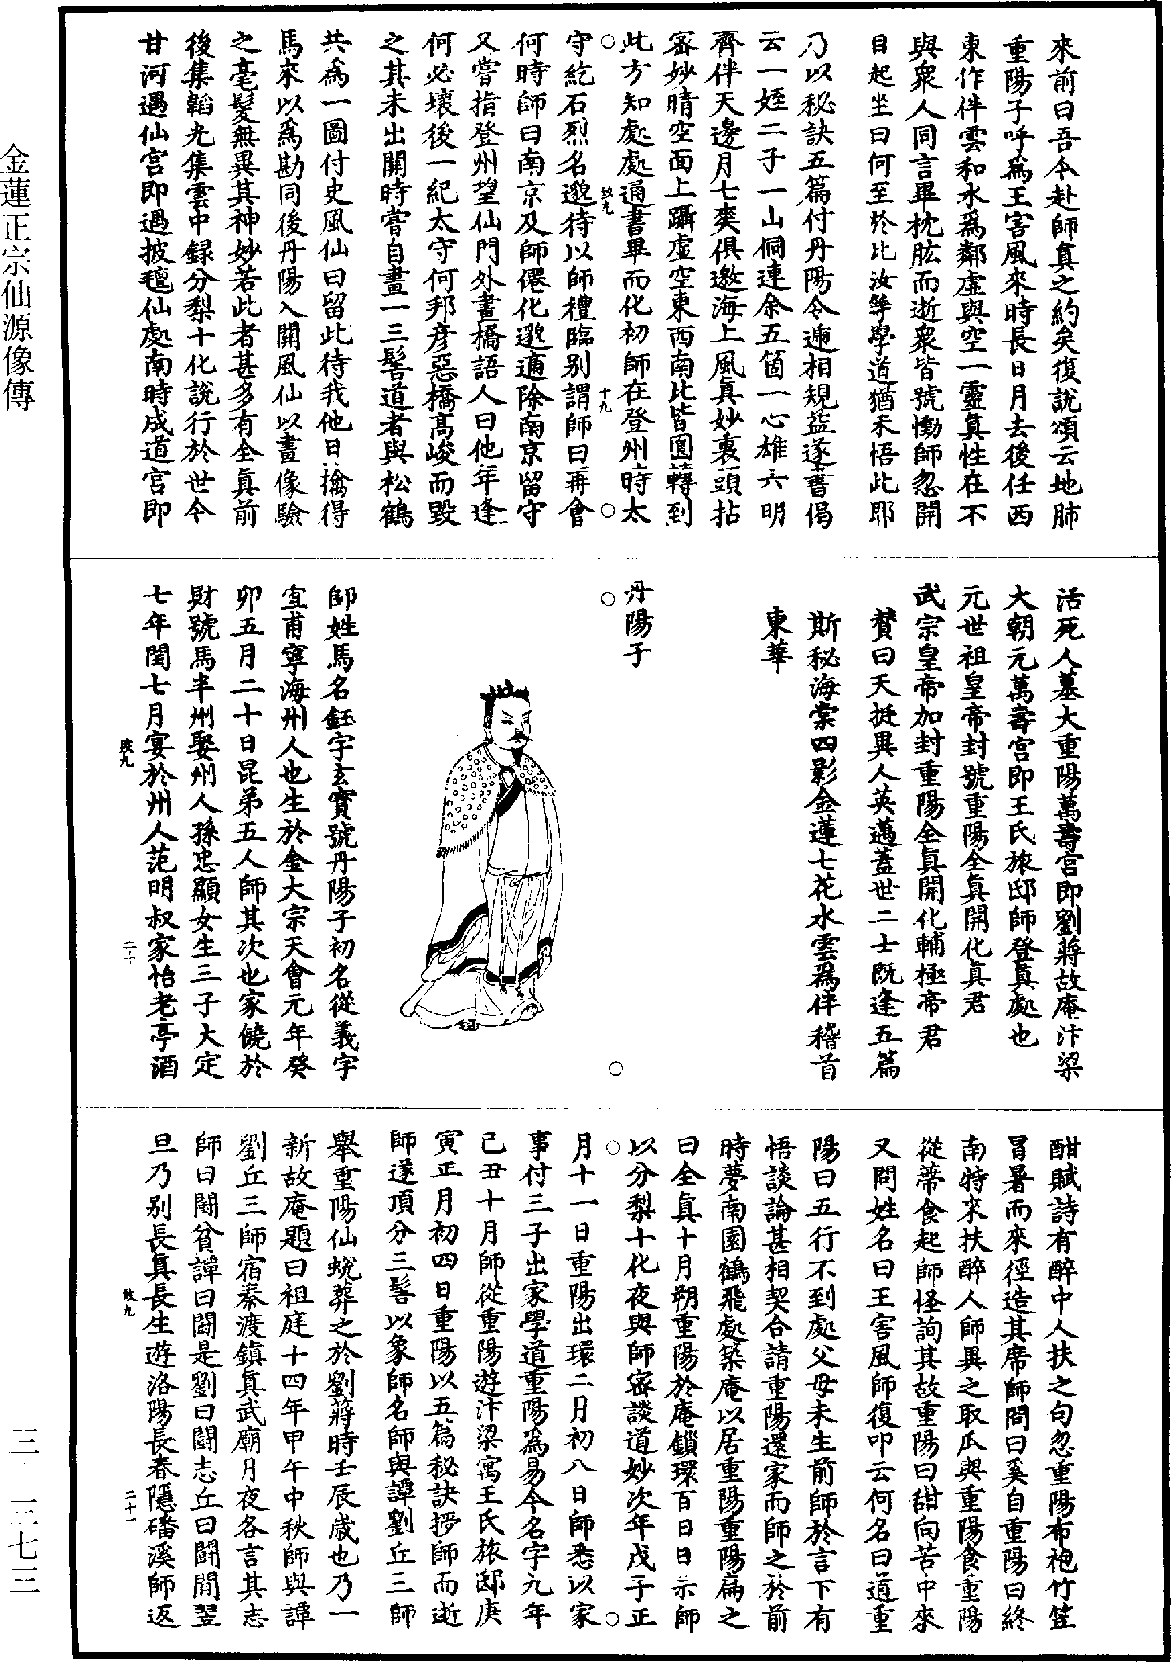 金蓮正宗仙源像傳
三 三七三
來前曰吾今赴師真之約矣復説頌云地肺
重陽子呼爲王害風來時長日月去後任西
東作伴雲和水爲鄰虛與空一靈真性在不
與衆人同言畢枕肱而逝衆皆號慟師忽開
目起坐曰何至於此汝等學道猶未悟此耶
乃以秘訣五篇付丹陽令遞相規益遂書偈
云一姪二子一山侗連余五箇一心雄六明
齊伴天邊月七爽俱邀海上風真妙裏頭拈
密妙晴空面上躡虛空東西南北皆圓轉到
此方知處處通書畢而化初師在登州時太
守紇石烈名邈待以師禮臨別謂師曰再會
何時師曰南京及師僊化邈適除南京留守
又嘗指登州望仙門外畫橋語人曰他年逢
何必壞後一紀太守何邦彦惡橋高峻而毀
之其未出關時嘗自畫一三髻道者與松鶴
共爲一圖付史風仙曰留此待我他日擒得
馬來以爲勘同後丹陽入關風仙以畫像驗
之毫髮無異其神妙若此者甚多有全真前
後集韜光集雲中録分梨十化説行於世今
甘河遇仙宮即過披氊仙處南時成道宮即
活死人墓大重陽萬壽宮即劉蔣故庵汴梁
大朝元萬壽宮即王氏旅邸師登真處也
元世祖皇帝封號重陽全真開化真君
武宗皇帝加封重陽全真開化輔極帝君
贊曰天挺異人英邁蓋世二士既逢五篇
斯秘海棠四影金蓮七花水雲爲伴稽首
東華
丹陽子
鈺
師姓馬名鈺字玄寶號丹陽子初名從義字
宜甫寧海州人也生於金大宗天會元年癸
卯五月二十日昆弟五人師其次也家饒於
財號馬半州娶州人孫忠顯女生三子大定
七年閏七月宴於州人范明叔家怡老亭酒
酣賦詩有醉中人扶之句忽重陽布袍竹笠
冒暑而來徑造其席師問曰奚自重陽曰終
南特來扶醉人師異之取瓜與重陽食重陽
從蒂食起師怪詢其故重陽曰甜向苦中來
又問姓名曰王害風師復叩云何名曰道重
陽曰五行不到處父母未生前師於言下有
悟談論甚相契合請重陽還家而師之於前
時夢南園鶴飛處築庵以居重陽重陽扁之
曰全真十月朔重陽於庵鎖環百日日示師
以分梨十化夜與師密談道妙次年戊子正
月十一日重陽出環二月初八日師悉以家
事付三子出家學道重陽爲易今名字九年
己丑十月師從重陽遊汴梁寓王氏旅邸庚
寅正月初四日重陽以五篇秘訣授師而逝
師遂頂分三髻以象師名師與譚劉丘三師
舉重陽仙蛻葬之於劉蔣時壬辰歲也乃一
新故庵題曰祖庭十四年甲午中秋師與譚
劉丘三師宿秦渡鎮真武廟月夜各言其志
師曰鬭貧譚曰鬭是劉曰鬭志丘曰鬭閒翌
旦乃別長真長生遊洛陽長春隱磻溪師返
致九
十九
致九
二十
致九
二十一